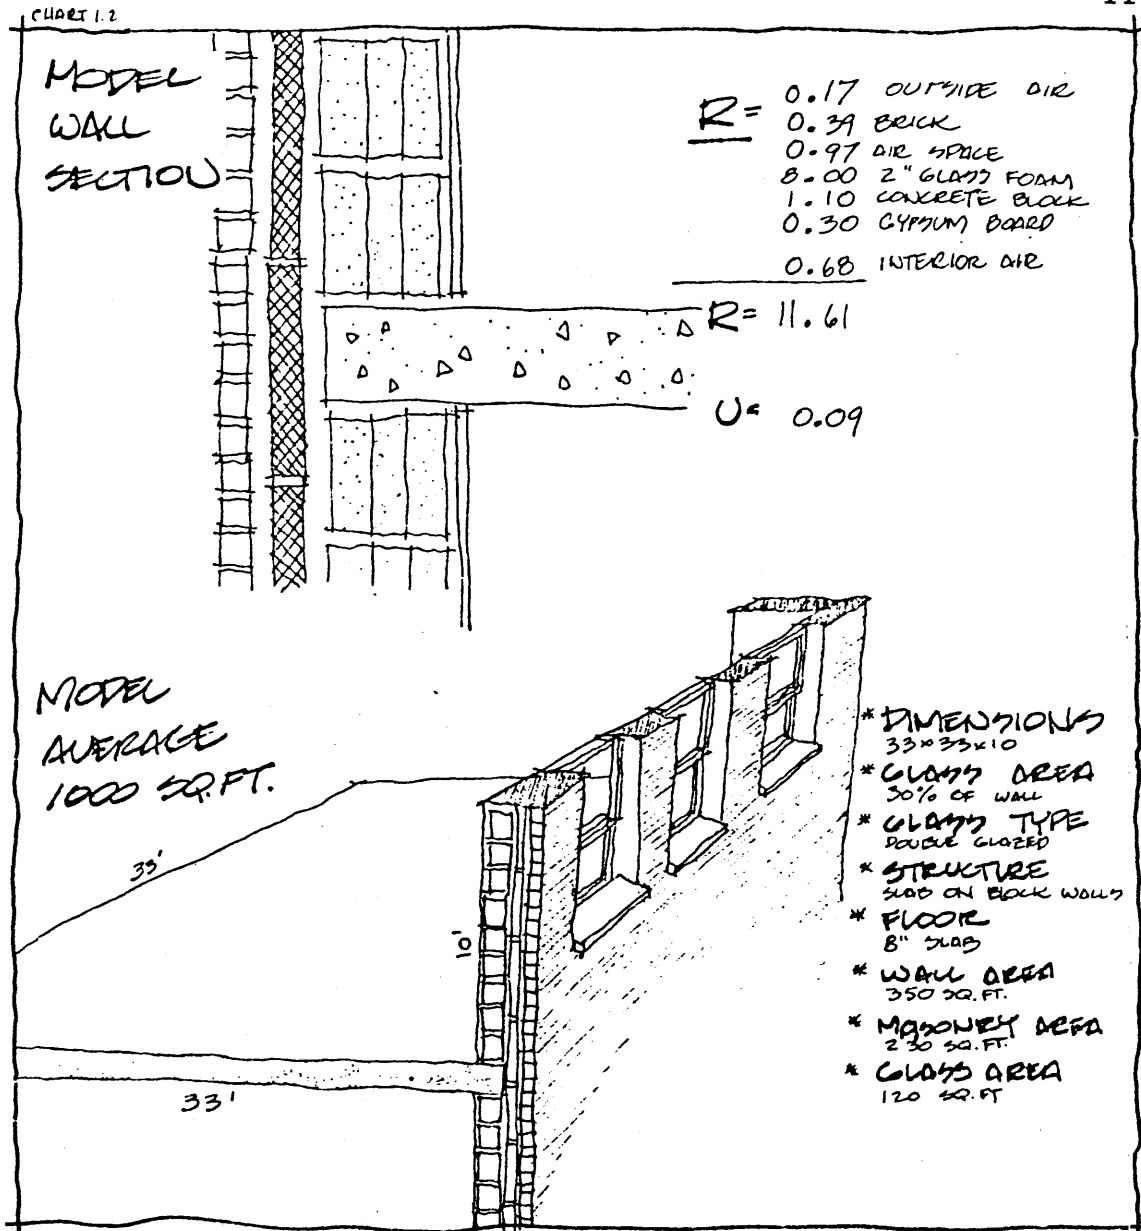 11
CHART 1.2
MODEL
WALL
SECTION
R=
0.17 OUTSIDE AIR
0.39 BRICK
0.97 AIR SPACE
8.00 2" GLASS FOAM
1.10 CONCRETE BLOCK
0.30 GYPSUM BOARD
0.68 INTERIOR AIR
R= 11.61
U= 0.09
MODEL
AVERAGE
1000 SQ.FT.
33'
10'
33'
* DIMENSIONS
33x33x10
* GLASS AREA
30% OF WALL
* GLASS TYPE
DOUBLE GLAZED
* STRUCTURE
SLAB ON BLOCK WALLS
* FLOOR
8" SLAB
* WALL AREA
350 SQ.FT.
* MASONRY AREA
230 SQ.FT
* GLASS AREA
120 SQ.FT